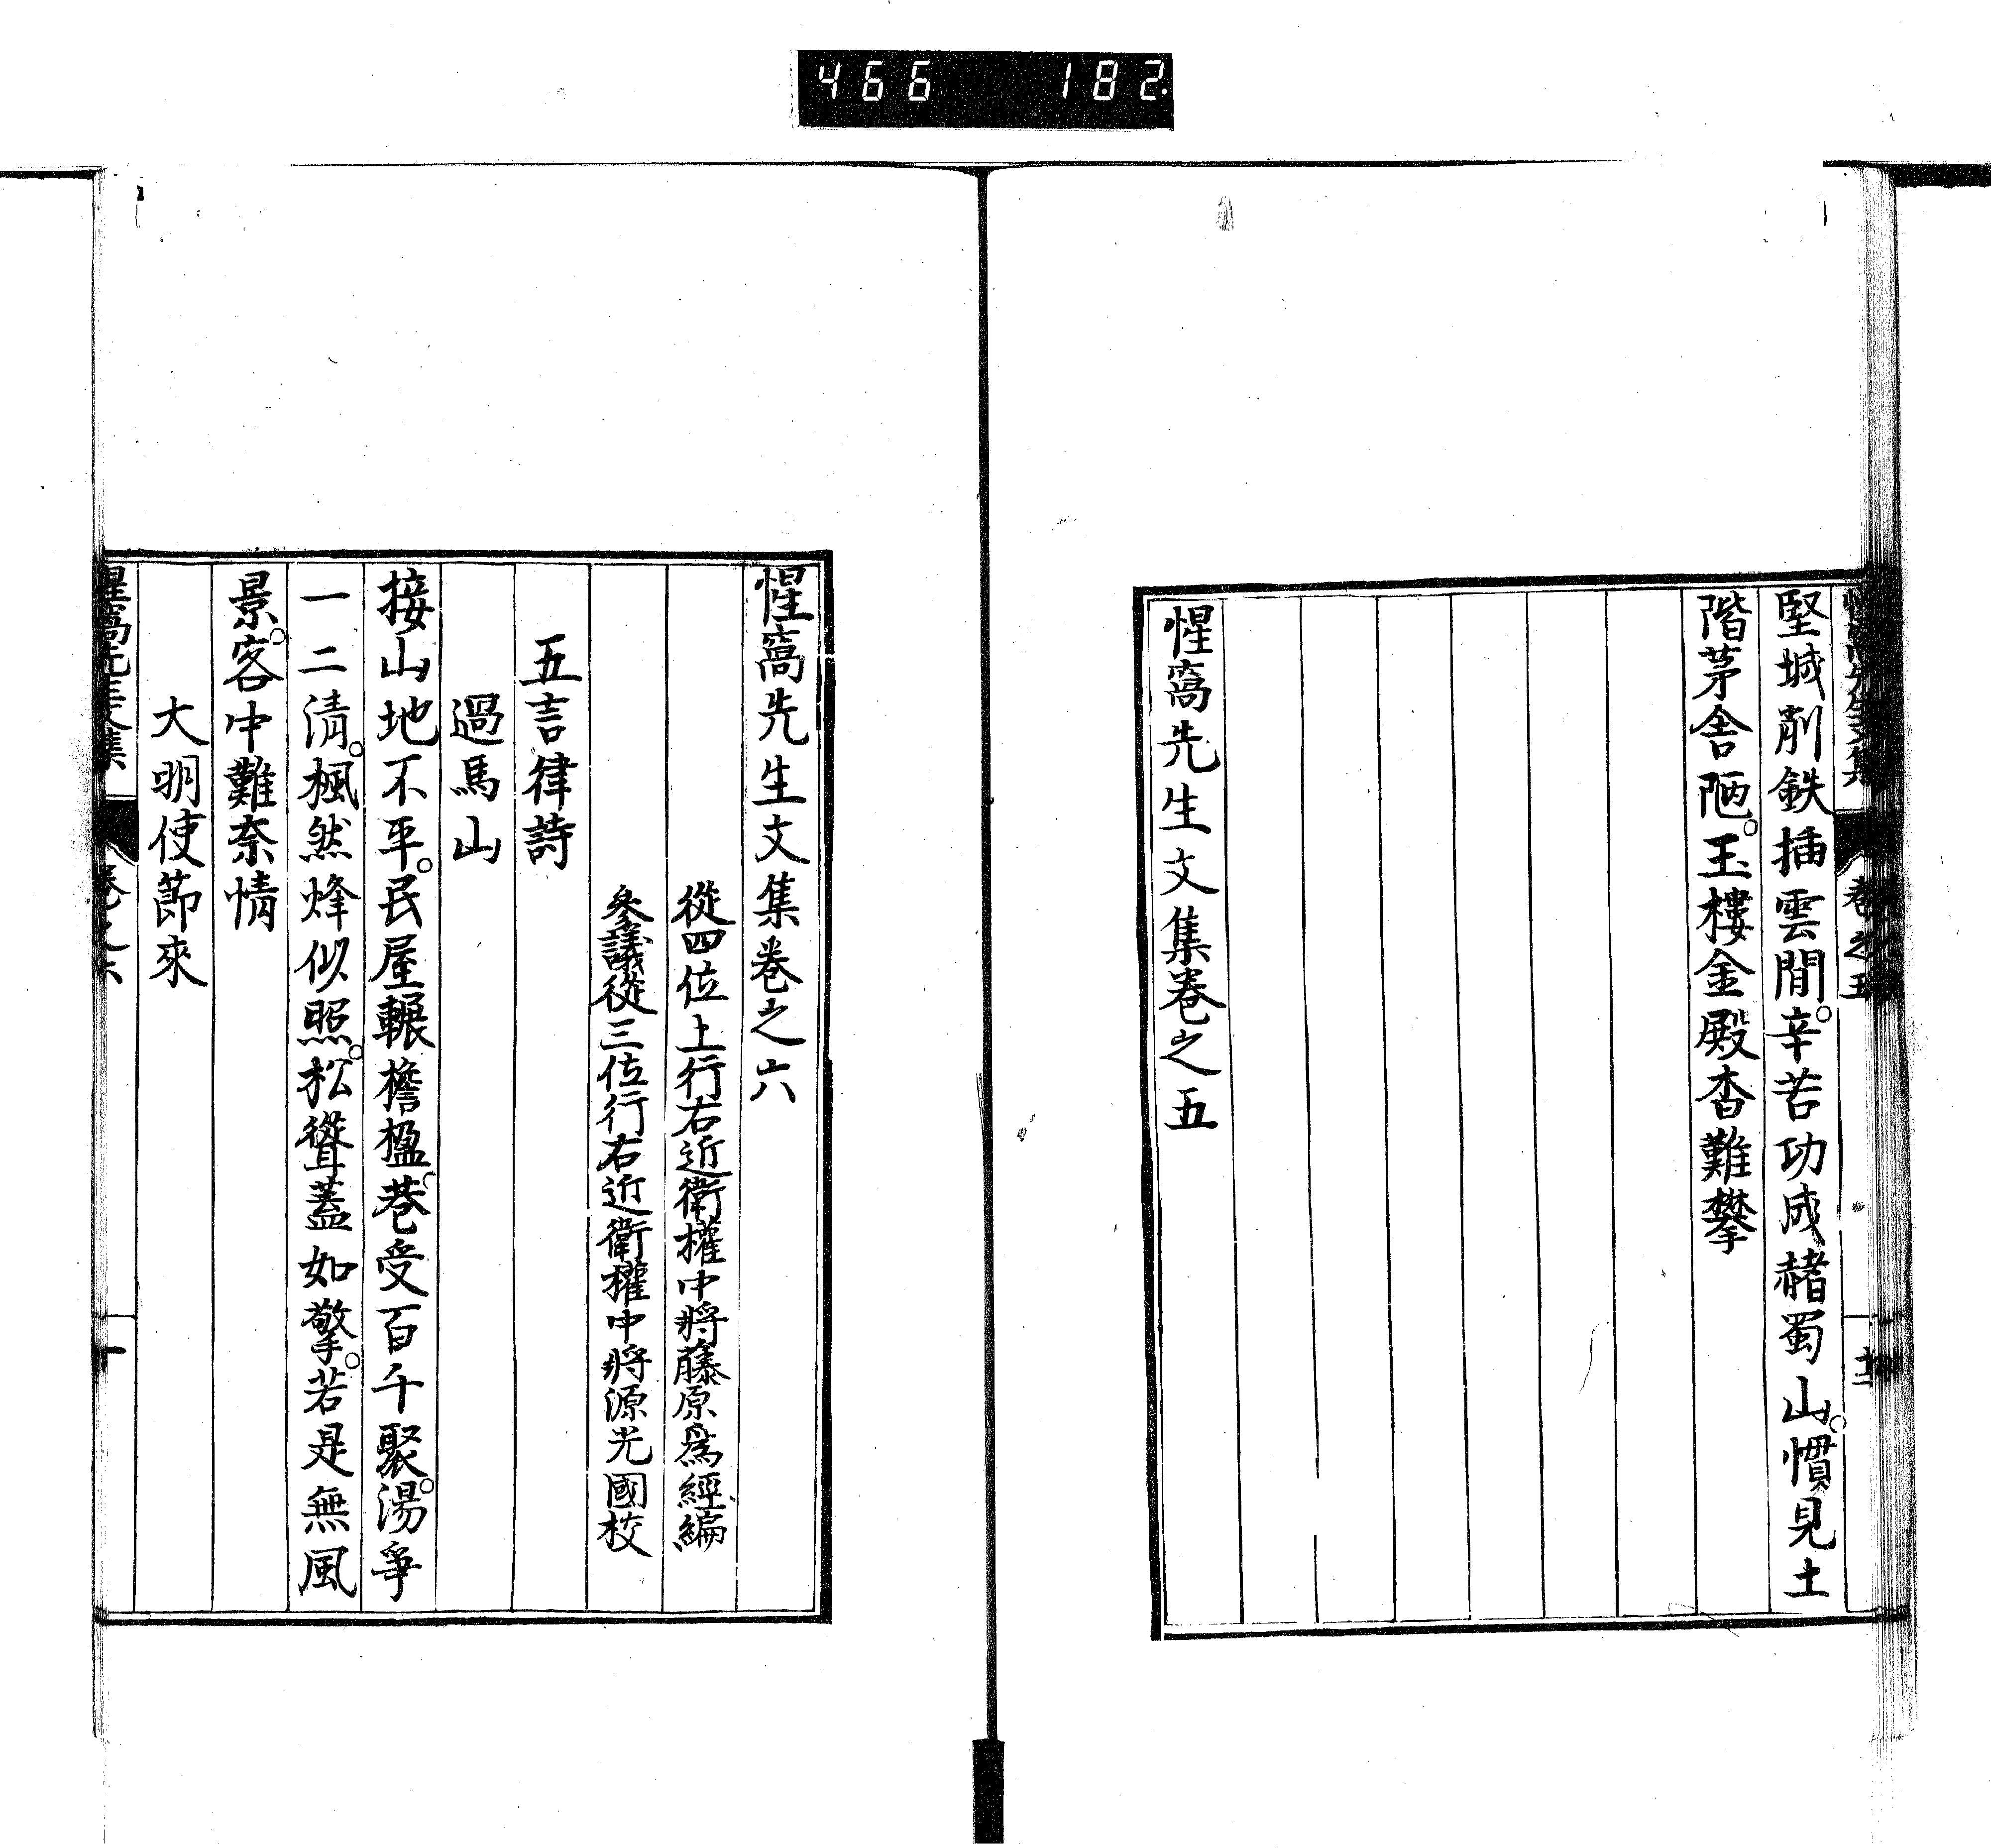 466 182
堅城削鉄插雲間。辛苦功成赭蜀山。慣見土
階茅舍陋。玉樓金殿杳難攀
惺窩先生文集卷之五
惺窩先生文集卷之六
從四位上行右近衛權中將藤原爲經編
參議從三位行右近衛權中將源光國校
五言律詩
過馬山
接山地不平。民屋輾檐楹。巷受百千聚。湯爭
一二清。楓然烽似照。松聳蓋如擎。若是無風
景。客中難奈情
大明使節來
惺窩先生文集 卷之六 一